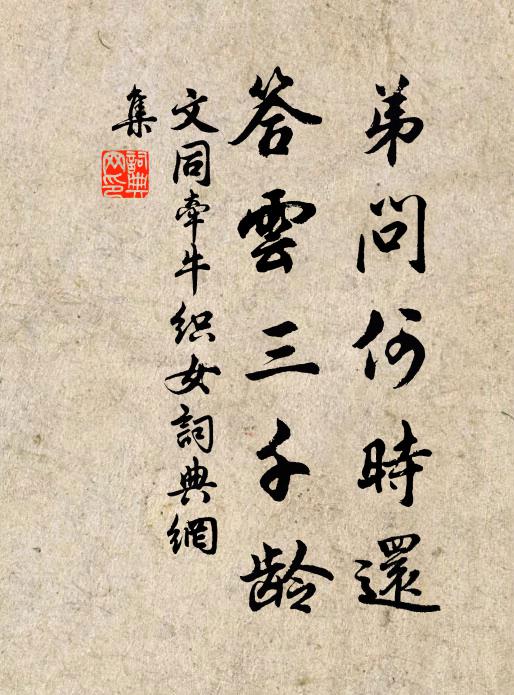 弟問何時還
答雲三千龄
文同牽牛织女詞典網
集
詞典
网印